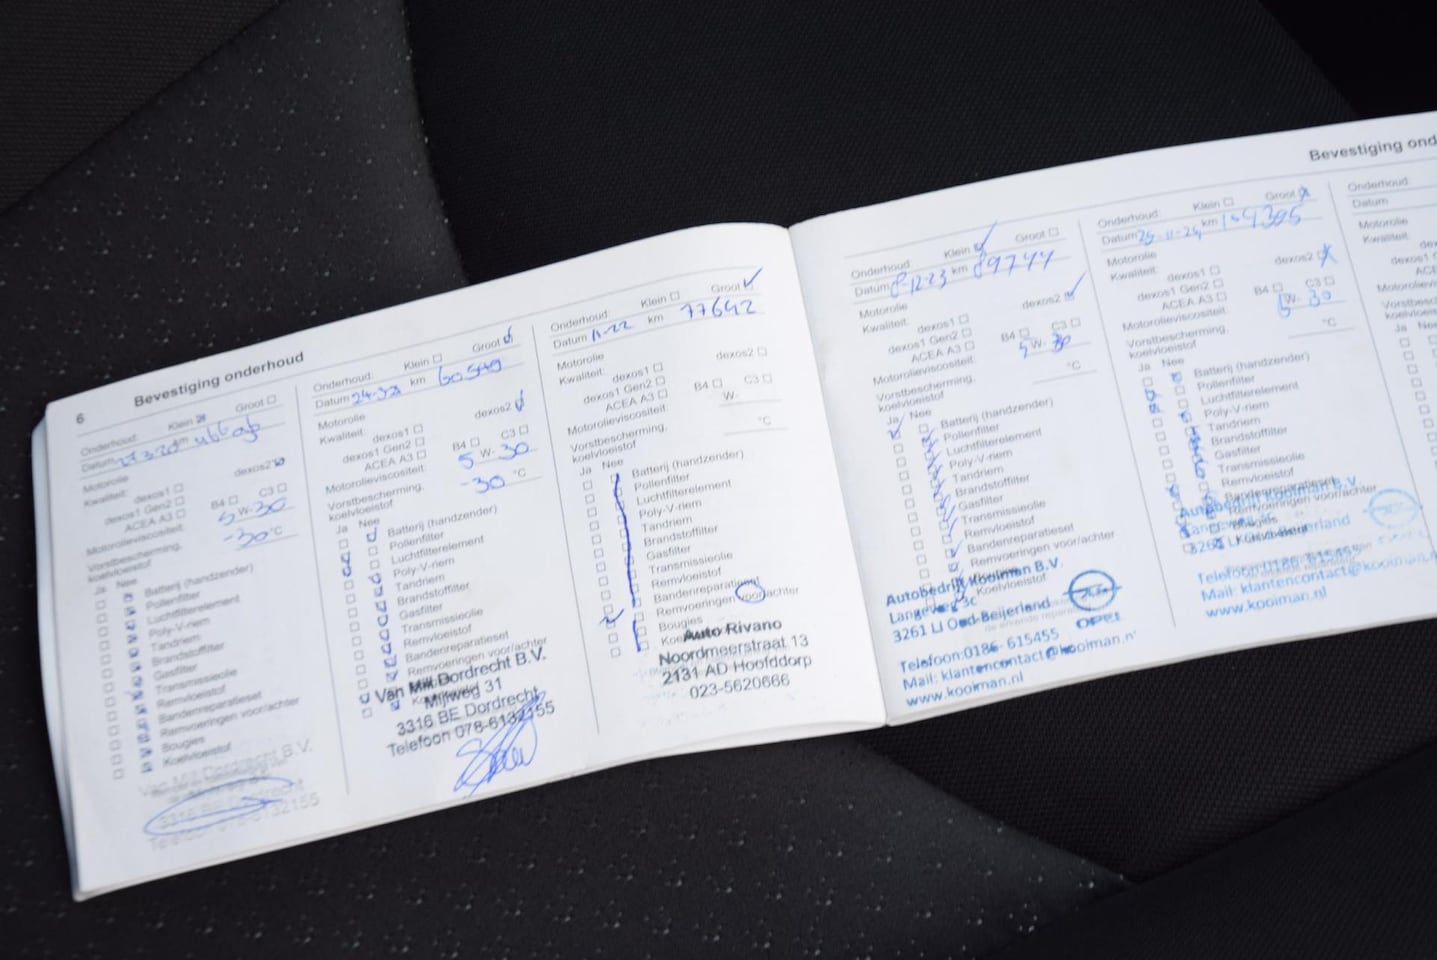 6
Bevestiging onderhoud
Onderhoud: Klein Groot
Datum km
Motorolie
Kwaliteit: dexos1 dexos2
dexos1 Gen2
ACEA A3 B4 C3
Motorolieviscositeit: 5 W-30
Vorstbescherming, koelvloeistof -30 °C
Ja Nee
Batterij (handzender)
Pollenfilter
Luchtfilterelement
Poly-V-riem
Tandriem
Brandstoffilter
Gasfilter
Transmissieolie
Remvloeistof
Bandenreparatieset
Remvoeringen voor/achter
Bougies
Koelvloeistof
Van Mill Dordrecht B.V.
3316 BE Dordrecht
Onderhoud: Klein Groot
Datum km 60.549
Motorolie
Kwaliteit: dexos1 dexos2
dexos1 Gen2
ACEA A3 B4 C3
Motorolieviscositeit: 5 W-30
Vorstbescherming, koelvloeistof -30 °C
Ja Nee
Batterij (handzender)
Pollenfilter
Luchtfilterelement
Poly-V-riem
Tandriem
Brandstoffilter
Gasfilter
Transmissieolie
Remvloeistof
Bandenreparatieset
Remvoeringen voor/achter
Van Mill Dordrecht B.V.
Mijlweg 31
3316 BE Dordrecht
Telefoon 078-6132155
Onderhoud: Klein Groot
Datum 11-22 km 77642
Motorolie
Kwaliteit: dexos1 dexos2
dexos1 Gen2
ACEA A3 B4 C3
Motorolieviscositeit: W-
Vorstbescherming, koelvloeistof °C
Ja Nee
Batterij (handzender)
Pollenfilter
Luchtfilterelement
Poly-V-riem
Tandriem
Brandstoffilter
Gasfilter
Transmissieolie
Remvloeistof
Bandenreparatieset
Remvoeringen voor/achter
Bougies
Auto Rivano
Noordmeerstraat 13
2131 AD Hoofddorp
023-5620666
Bevestiging ond
Onderhoud: Klein Groot
Datum 8-12-23 km 89744
Motorolie
Kwaliteit: dexos1 dexos2
dexos1 Gen2
ACEA A3 B4 C3
Motorolieviscositeit: 5 W-30
Vorstbescherming, koelvloeistof °C
Ja Nee
Batterij (handzender)
Pollenfilter
Luchtfilterelement
Poly-V-riem
Tandriem
Brandstoffilter
Gasfilter
Transmissieolie
Remvloeistof
Bandenreparatieset
Remvoeringen voor/achter
Koelvloeistof
Autobedrijf Kooiman B.V.
Langeweg 3c
3261 LJ Oud-Beijerland
OPEL
Telefoon:0186- 615455
Mail: klantencontact@kooiman.n
www.kooiman.nl
Onderhoud: Klein Groot
Datum km
Motorolie
Kwaliteit: dexos1 dexos2
dexos1 Gen2
ACEA A3 B4 C3
Motorolieviscositeit: 5 W- 30
Vorstbescherming, koelvloeistof °C
Ja Nee
Batterij (handzender)
Pollenfilter
Luchtfilterelement
Poly-V-riem
Tandriem
Brandstoffilter
Gasfilter
Transmissieolie
Remvloeistof
Bandenreparatieset
Remvoeringen voor/achter
Bougies
Autobedrijf Kooiman B.V.
Telefoon:0186- 615455
Mail: klantencontact@kooiman.n
www.kooiman.nl
Onderhoud:
Datum
Motorolie
Kwaliteit:
Ja Nee